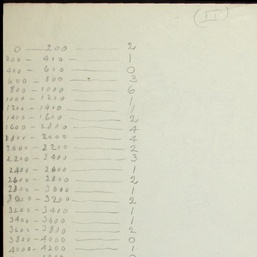 (II)
0 — 200 — 2
200 — 400 — 1
400 — 600 — 0
600 — 800 — 3
800 — 1000 — 6
1000 — 1200 — 1
1200 — 1400 — 1
1400 — 1600 — 2
1600 — 1800 — 4
1800 — 2000 — 4
2000 — 2200 — 2
2200 — 2400 — 3
2400 — 2600 — 1
2600 — 2800 — 2
2800 — 3000 — 1
3000 — 3200 — 2
3200 — 3400 — 1
3400 — 3600 — 1
3600 — 3800 — 2
3800 — 4000 — 0
4000 — 4200 — 1